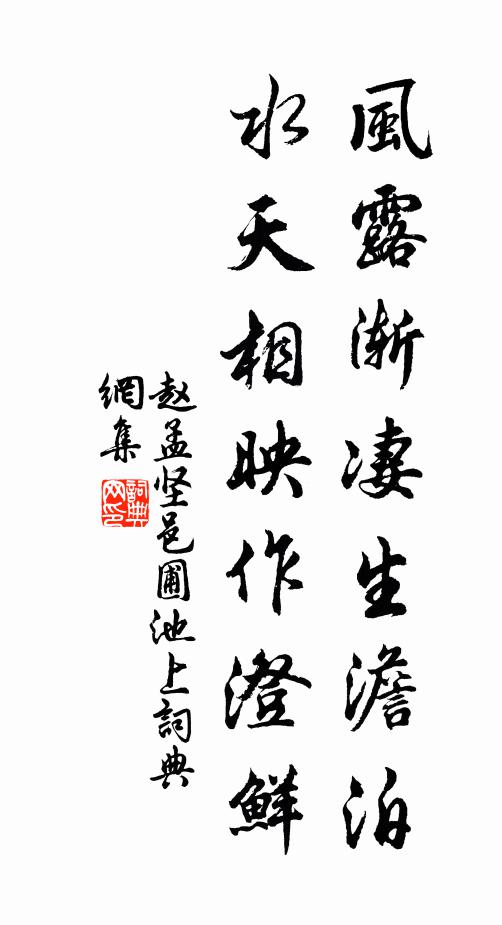 風露渐凄生澹泊
水天相映作澄鮮
赵孟坚邑圃池上詞典
網集
詞典
网印